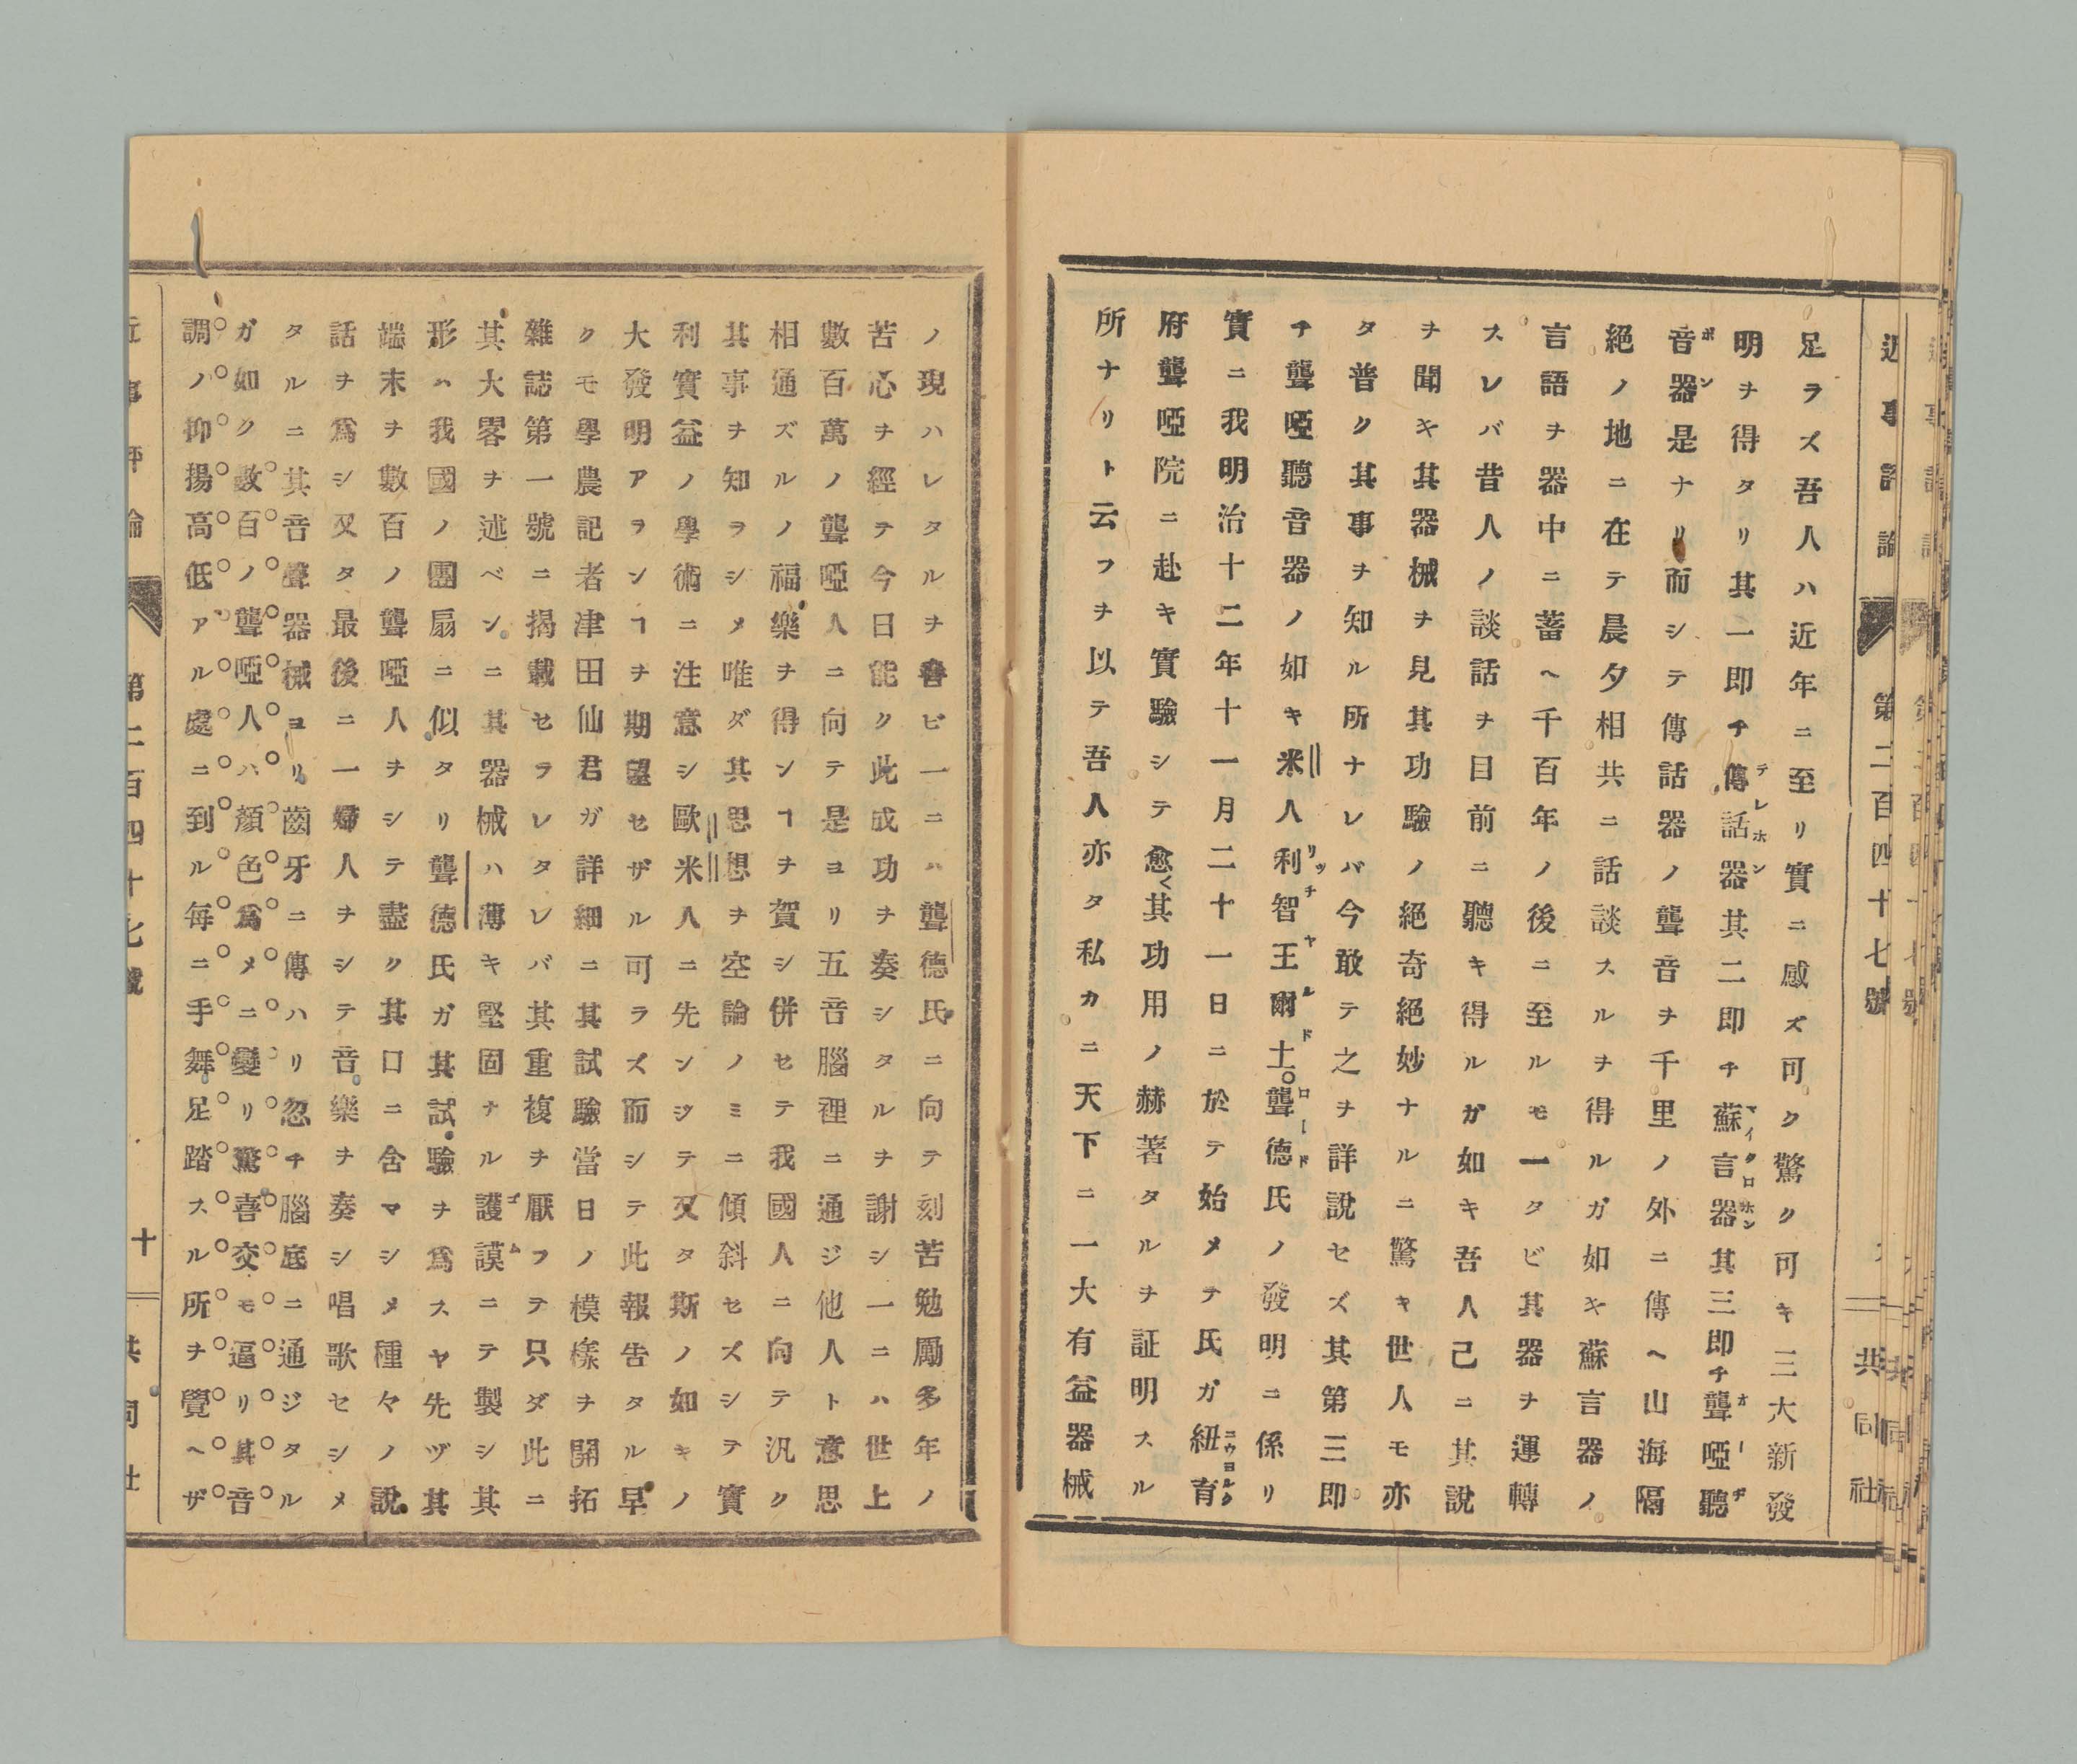 近事評論
第二百四十七號
共同社
足ラズ吾人ハ近年ニ至リ實ニ感ズ可ク驚ク可キ三大新發
明ヲ得タリ其一即チ傳話器其二即チ蘇言器其三即チ聾啞聽
テレホン
マイクロホン
オーヂ
音器是ナリ而シテ傳話器ノ聾音ヲ千里ノ外ニ傳ヘ山海隔
ホン
絕ノ地ニ在テ晨夕相共ニ話談スルヲ得ルガ如キ蘇言器ノ
言語ヲ器中ニ蓄ヘ千百年ノ後ニ至ルモ一タビ其器ヲ運轉
スレバ昔人ノ談話ヲ目前ニ聽キ得ルガ如キ吾人己ニ其說
ヲ聞キ其器械ヲ見其功驗ノ絕奇絕妙ナルニ驚キ世人モ亦
タ普ク其事ヲ知ル所ナレバ今敢テ之ヲ詳說セズ其第三即
チ聾啞聽音器ノ如キ米人利智王爾土。聾德氏ノ發明ニ係リ
リッチヤルド
ロード
實ニ我明治十二年十一月二十一日ニ於テ始メテ氏ガ紐育
ニウヨルク
府聾啞院ニ赴キ實驗シテ愈〱其功用ノ赫著タルヲ証明スル
所ナリト云フヲ以テ吾人亦タ私カニ天下ニ一大有益器械
ノ現ハレタルヲ喜ビ一ニハ聾德氏ニ向テ刻苦勉勵多年ノ
苦心ヲ經テ今日能ク此成功ヲ奏シタルヲ謝シ一ニハ世上
數百萬ノ聾啞人ニ向テ是ヨリ五音腦裡ニ通ジ他人ト意思
相通ズルノ福樂ヲ得ンヿヲ賀シ併セテ我國人ニ向テ汎ク
其事ヲ知ラシメ唯ダ其思想ヲ空論ノミニ傾斜セズシテ實
利實益ノ學術ニ注意シ歐米人ニ先ンヅテ又タ斯ノ如キノ
大發明アランヿヲ期望セザル可ラズ而シテ此報告タル早
クモ學農記者津田仙君ガ詳細ニ其試驗當日ノ模樣ヲ開拓
雜誌第一號ニ揭載セラレタレバ其重複ヲ厭フテ只ダ此ニ
其大畧ヲ述ベンニ其器械ハ薄キ堅固ナル護謨ニテ製シ其
ゴム
形ハ我國ノ團扇ニ似タリ聾德氏ガ其試驗ヲ爲スヤ先ヅ其
端末ヲ數百ノ聾啞人ヲシテ盡ク其口ニ含マシメ種々ノ說
話ヲ爲シ又タ最後ニ一婦人ヲシテ音樂ヲ奏シ唱歌セシメ
タルニ其音聲器械ヨリ齒牙ニ傳ハリ忽チ腦底ニ通ジタル
ガ如ク數百ノ聾啞人ハ顏色爲メニ變リ驚喜交モ逼リ其音
調ノ抑揚高低アル處ニ到ル每ニ手舞足踏スル所ヲ覺ヘザ
近事評論
第二百四十七號
十
共同社